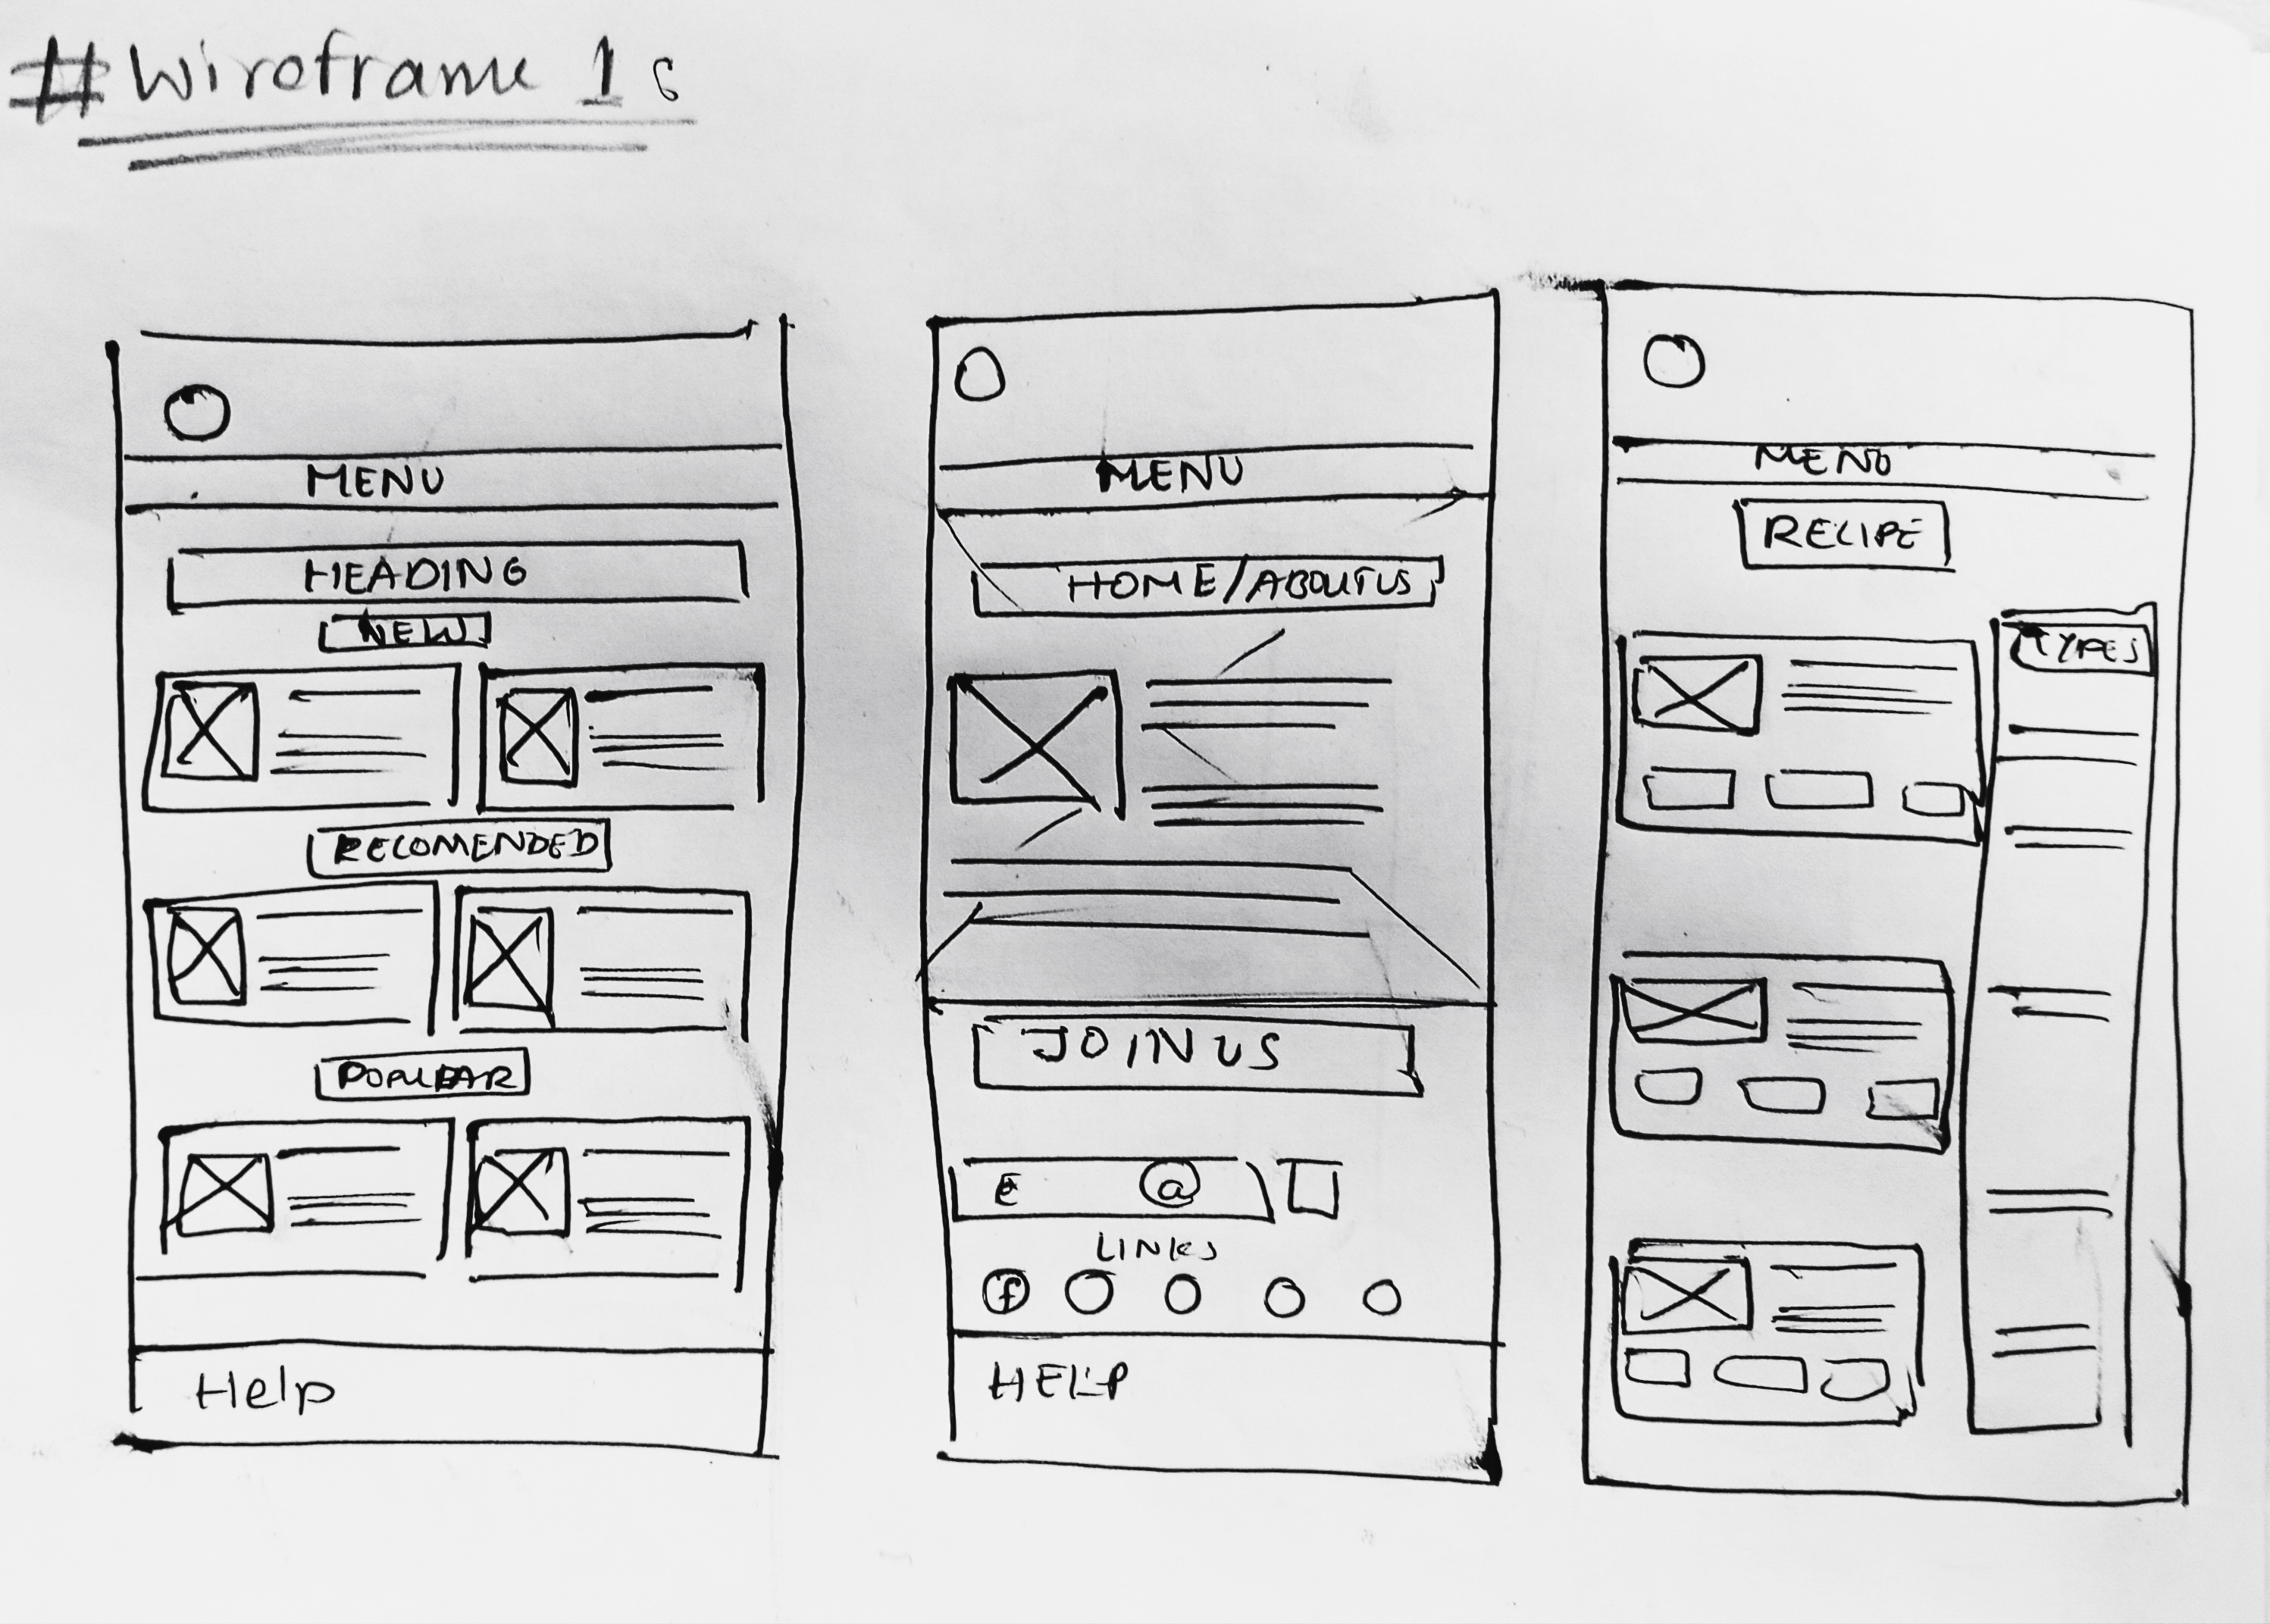 #Wireframe 1:
MENU
HEADING
NEW
RECOMENDED
POPULAR
Help
MENU
HOME/ABOUTUS
JOIN US
e @
LINKS
f
HELP
MENU
RECIPE
TYPES